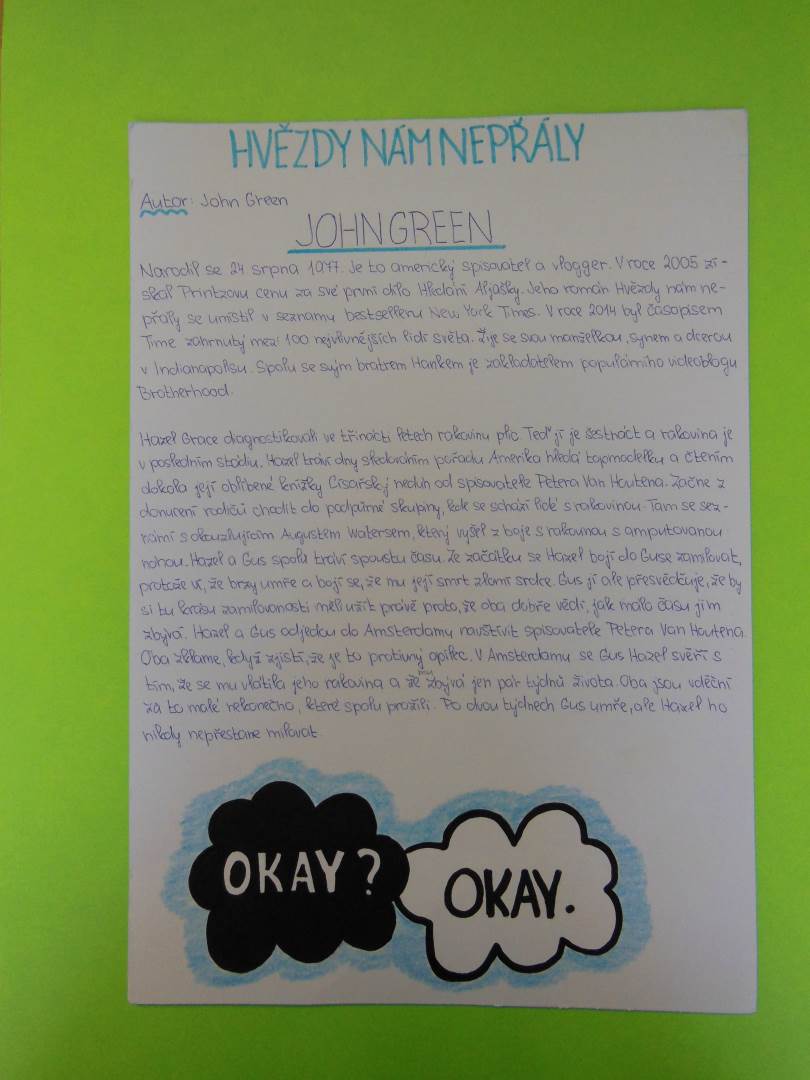 HVĚZDY NÁM NEPŘÁLY
Autor: John Green
JOHN GREEN
Narodil se 24. srpna 1977. Je to americký spisovatel a vlogger. V roce 2005 zí-
skal Printzovu cenu za své první dílo Hledání Aljašky. Jeho román Hvězdy nám ne-
přály se umístil v seznamu bestsellerů New York Times. V roce 2014 byl časopisem
Time zahrnutý mezi 100 nejvlivnějších lidí světa. Žije se svou manželkou, synem a dcerou
v Indianapolisu. Spolu se svým bratrem Hankem je zakladatelem populárního videoblogu
Brotherhood.
Hazel Grace diagnostikovali ve třinácti letech rakovinu plic. Teď jí je šestnáct a rakovina je
v posledním stádiu. Hazel tráví dny sledováním pořadu Amerika hledá topmodelku a čtením
dokola její oblíbené knížky Císařský neduh od spisovatele Petera Van Houtena. Začne z
donucení rodičů chodit do podpůrné skupiny, kde se schází lidé s rakovinou. Tam se sez-
námí s okouzlujícím Augustem Watersem, který vyšel z boje s rakovinou s amputovanou
nohou. Hazel a Gus spolu tráví spoustu času. Ze začátku se Hazel bojí do Guse zamilovat,
protože ví, že brzy umře a bojí se, že mu její smrt zlomí srdce. Gus jí ale přesvědčuje, že by
si tu krásu zamilovanosti měli užít právě proto, že oba dobře vědí, jak málo času jim
zbývá. Hazel a Gus odjedou do Amsterdamu navštívit spisovatele Petera Van Houtena.
Oba zklame, když zjistí, že je to protivný opilec. V Amsterdamu se Gus Hazel svěří s
tím, že se mu vrátila jeho rakovina a že mu zbývá jen pár týdnů života. Oba jsou vděční
za to malé nekonečno, které spolu prožili. Po dvou týdnech Gus umře, ale Hazel ho
nikdy nepřestane milovat.
OKAY?
OKAY.